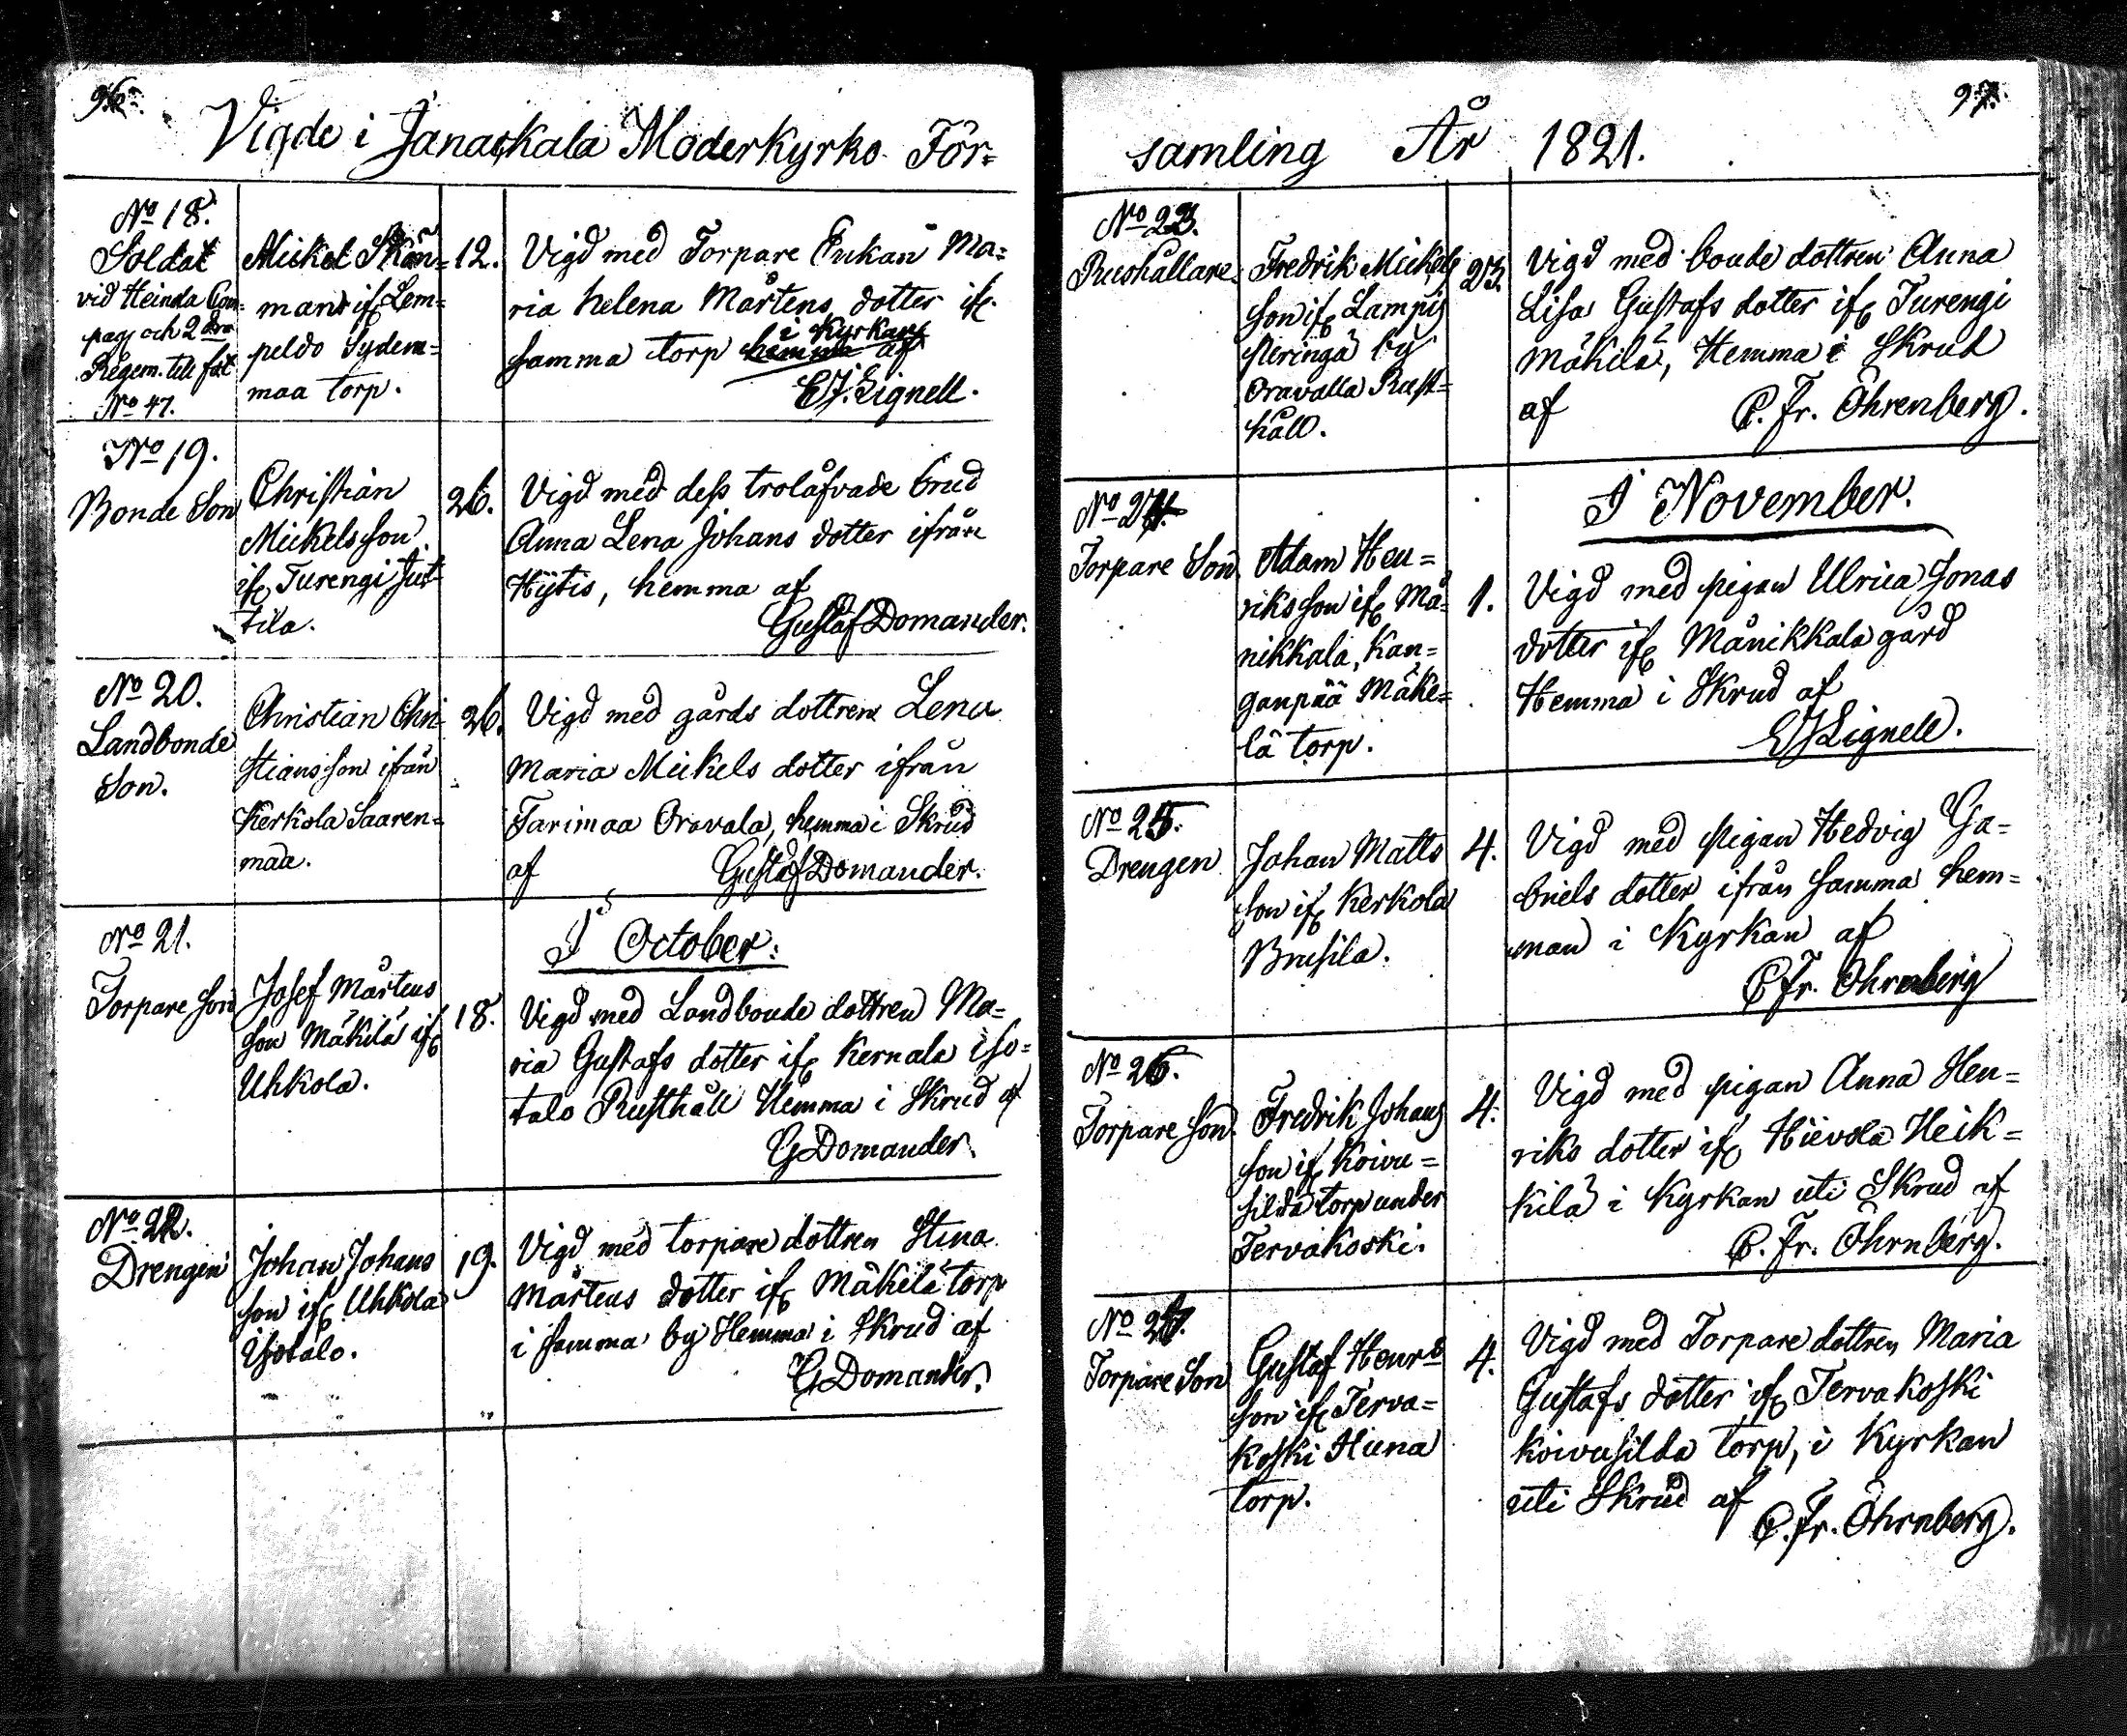 96.
Vigde i Janackala Moderkyrko För=
No 18.
Soldat
vid Heinda Com=
pag och 2 dra
Regem. till fot
No 47.
Mickel Skön=
man if Lem=
peldo Sydem=
maa torp.
12.
Vigd med Torpare Enkan Ma=
ria helena Mårtens dotter if
i Kyrkan
samma torp hemma af
EJ. Lignell.
No 19.
Bonde Son
Christian
Mickelsson
if Turengi Jut
tila.
26.
Vigd med dess trolåfvade brud
Anna Lena Johans dotter ifrån
Hÿtis, hemma af
Gustaf Domander.
No 20.
Landbonde
Son.
Christian Chri=
stiansson ifrån
Kerkola Saaren=
maa.
26.
Vigd med gårds dottren Lena
Maria Mickels dotter ifrån
Tarimaa Oravala, hemma i Skrud
af Gustaf Domander.
No 21.
Torpare Son
Josef Mårtens
son Mäkilä if
Uhkola.
18.
I October.
Vigd med Landbonde dottren Ma=
ria Gustafs dotter if Kernala iso=
talo Rusthåll Hemma i Skrud af
G Domander.
No 22.
Drengen
Johan Johans
son if Uhkola
Isotalo.
19.
Vigd med torpare dottren Stina
Mårtens dotter if Mäkelä torp
i samma by Hemma i Skrud af
G Domander.
97.
samling År 1821.
No 23.
Rushållare
Fredrik Mickels
son if Lampis
Peringä by
Oravalla Rust=
håll.
23.
Vigd med bonde dottren Anna
Lisa Gustafs dotter if Turengi
Mäkilä, Hemma i Skrud
af C. Fr. Öhrenberg.
No 24.
Torpare Son
Adam Hen=
riksson if Må=
nikkala, Kan=
ganpää Mäke=
lä torp.
1.
I November.
Vigd med pigan Ulrica Jonas
dotter if Månikkala gård
Hemma i Skrud af
EJ Lignell.
No 25.
Drengen
Johan Matts
son if Kerkola
Brusila.
4.
Vigd med pigan Hedvig Ga=
briels dotter ifrån samma hem=
man i Kyrkan af
C Fr. Öhrnberg
No 26.
Torpare Son
Fredrik Johans
son if Koivu=
silda torp under
Tervakoski.
4.
Vigd med pigan Anna Hen=
riks dotter if Hievola Heik=
kilä i Kyrkan uti Skrud af
C. Fr. Öhrnberg.
No 27.
Torpare Son
Gustaf Henrd
son if Terva=
koski Huna
torp.
4.
Vigd med Torpare dottren Maria
Gustafs dotter if Tervakoski
Koivusilda torp, i Kyrkan
uti Skrud af
C. Fr. Öhrnberg.